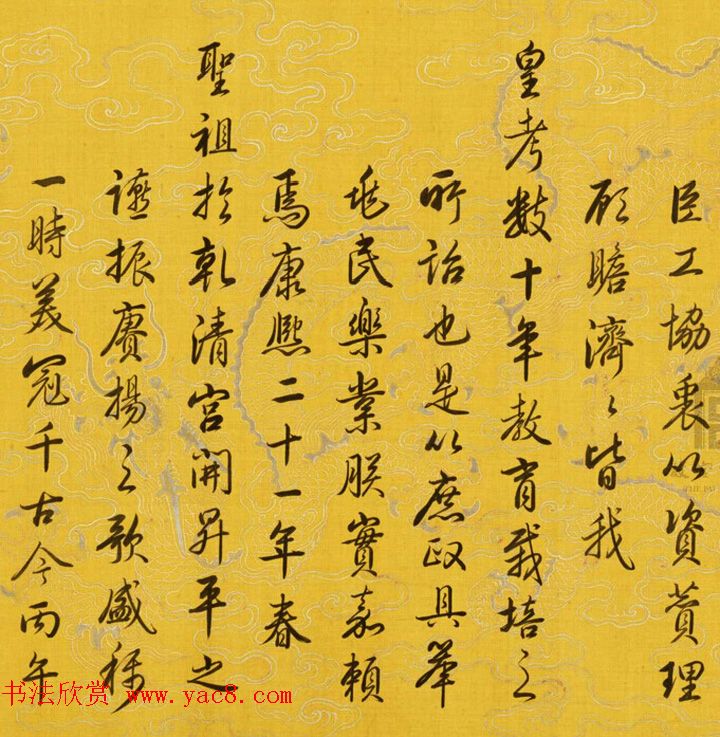 臣工協衷以資贊理
顧瞻濟〻皆我
皇考數十年教育栽培之
所詒也是以庶政具舉
兆民樂業朕實嘉賴
焉康熙二十一年春
聖祖於乾清宮開昇平之
讌振賡揚之歌盛稱
一時美冠千古今丙午
书法欣赏 www.yac8.com